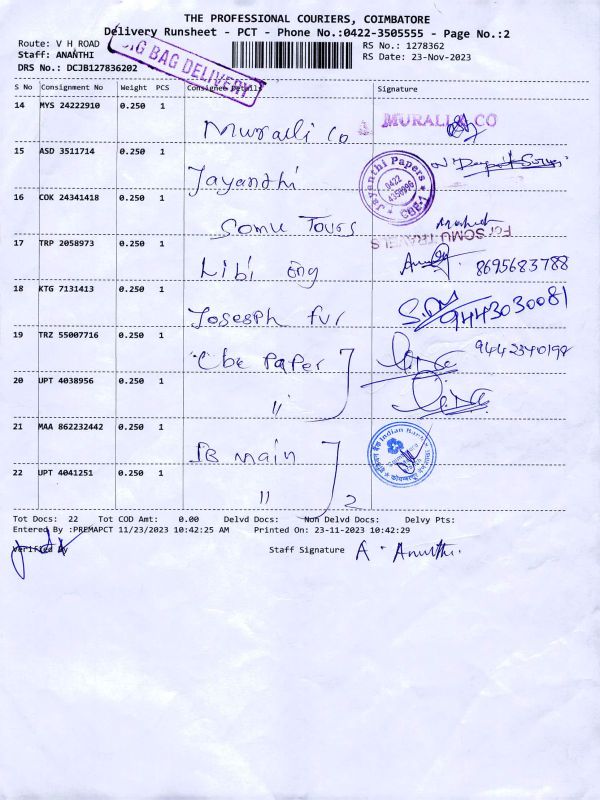 THE PROFESSIONAL COURIERS, COIMBATORE
Delivery Runsheet - PCT - Phone No.:0422-3505555 - Page No.:2
Route: V H ROAD
BIG BAG DELIVERY
RS No.: 1278362
Staff: ANANTHI
RS Date: 23-Nov-2023
DRS No.: DCJB127836202
S No Consignment No Weight PCS Consignee Details Signature
14 MYS 24222910 0.250 1
Muralli Co MURALLI & CO
15 ASD 3511714 0.250 1
Jayanthi Jayanthi Papers 0422 4350996 CBE-1
16 COK 24341418 0.250 1
Somu Tours For SOMU TRAVELS
17 TRP 2058973 0.250 1
Libi eng 8695683788
18 KTG 7131413 0.250 1
Josesph fur 9443030081
19 TRZ 55007716 0.250 1
Cbe Paper 9442340198
20 UPT 4038956 0.250 1
11
21 MAA 862232442 0.250 1
IB main Indian Bank
22 UPT 4041251 0.250 1
11 2
Tot Docs: 22 Tot COD Amt: 0.00 Delvd Docs: Non Delvd Docs: Delvy Pts:
Entered By :PREMAPCT 11/23/2023 10:42:25 AM Printed On: 23-11-2023 10:42:29
Verified By Staff Signature A. Ananthi.